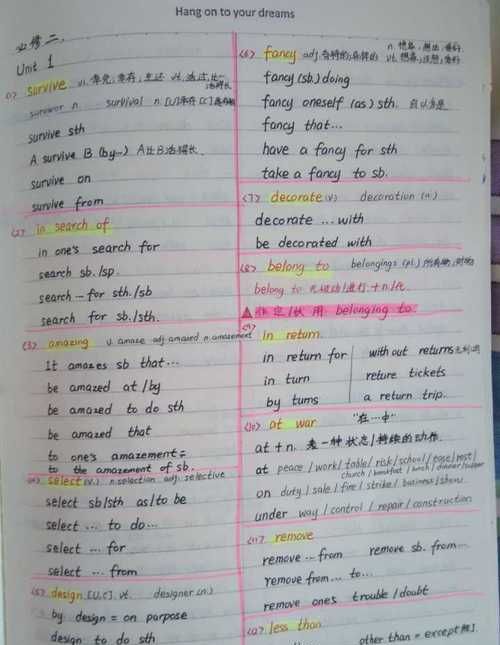 Hang on to your dreams
必修二.
Unit 1
(1) survive vi. 幸免; 幸存; 生还 vt.
survivor n. survival n. [U]幸存 [C]
survive sth
A survive B (by~) A比B活得长.
survive on
survive from
(2) in search of
in one's search for
search sb./sp.
search ~ for sth./sb
search for sb./sth.
(3) amazing v. amaze adj. amazed n. amazement
It amazes sb that...
be amazed at/by
be amazed to do sth
be amazed that
to one's amazement =
to the amazement of sb.
(4) select (v.) n. selection adj. selective
select sb/sth as/to be
select ... to do...
select ... for
select ... from
(5) design. [U,C]. vt. designer (n.)
by design = on purpose
design to do sth
(6) fancy adj. 奇特的; 异样的 n. 想象; vt. 想象;
fancy (sb.) doing
fancy oneself (as) sth. 自认为是
fancy that...
have a fancy for sth
take a fancy to sb.
(7) decorate (v) decoration (n.)
decorate ... with
be decorated with
(8) belong to belongings (pl.) 所有物; 财物
belong to 无被动/进行. + n./代.
作定/状 用 belonging to.
(9) in return.
in return for without returns 无利润
in turn reture tickets
by turns a return trip.
(10) at war "在...中"
at + n. 表一种状态/持续的动作.
at peace / work / table / risk / school / ease / rest /
church / breakfast / lunch / dinner / supper
on duty / sale / fire / strike / business / show.
under way / control / repair / construction
(11) remove
remove ... from remove sb. from...
remove from... to...
remove ones trouble / doubt
(12) less than
other than = except 除].